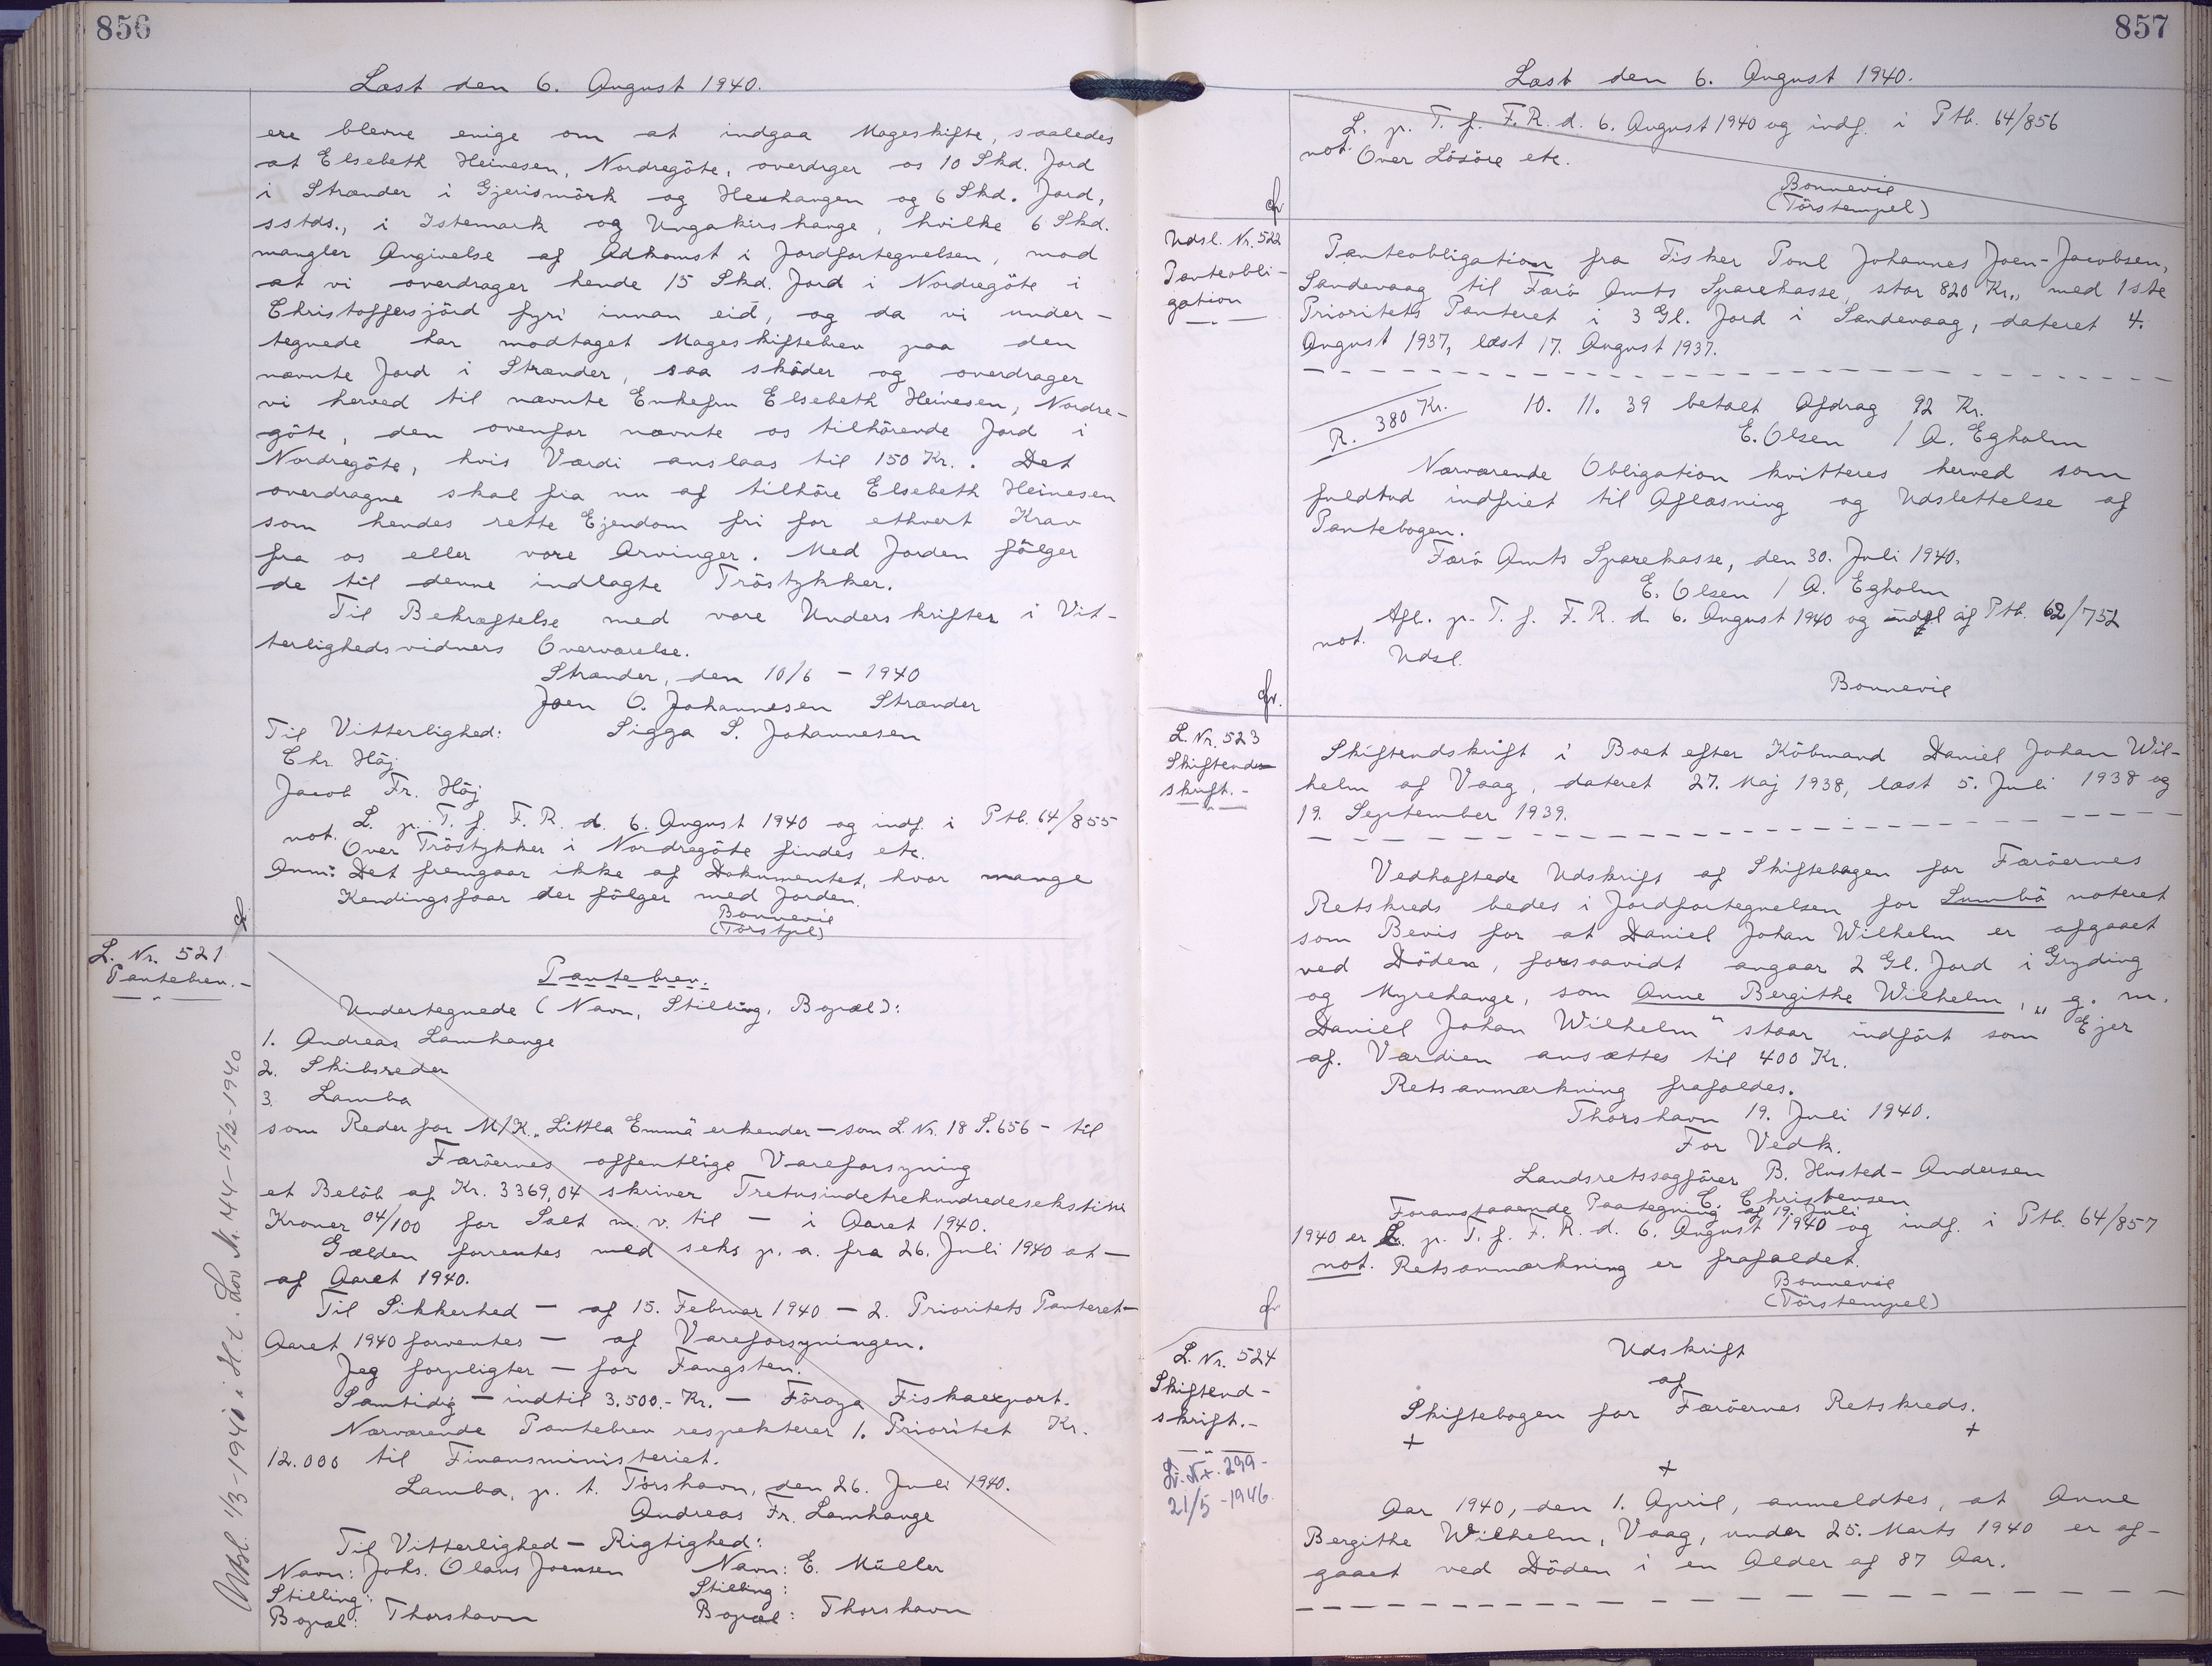 856
Læst den 6. August 1940.
ere blevne enige om at indgaa Mageskifte, saaledes
at Elsebeth Heinesen, Nordregöte, overdrger os 10 Skd. Jord
i Strænder i Gjerismörk og Heuhangen og 6 Skd. Jord,
sstds., i Istemark og Ungakirshange, hvilke 6 Skd.
mangler Angivelse af Adkomst i Jordfortegnelsen, mod
at vi overdrager hende 15 Skd. Jord i Nordregöte i
Christoffersjörd fyri innan eid, og da vi under-
tegnede har modtaget Mageskiftebrev paa den
nævnte Jord i Strænder, saa sköder og overdrager
vi herved til nævnte Enkefru Elsebeth Heinesen, Nordre-
göte, den ovenfor nævnte os tilhörende Jord i
Nordregöte, hvis Værdi anslaas til 150 Kr.. Det
overdragne skal fra nu af tilhöre Elsebeth Heinesen
som hendes rette Ejendom fri for ethvert Krav
fra os eller vore Arvinger. Med Jorden fölger
de til denne indlagte Tröstykker.
Til Bekræftelse med vore Underskrifter i Vit-
terlighedsvidners Overværelse.
Strænder, den 10/6 - 1940
Joen O. Johannesen Strænder
Til Vitterlighed: Sigga S. Johannesen
Chr. Höj
Jacob Fr. Höj
L. p. T. f. F. R. d. 6. August 1940 og indf. i Ptb. 64/855
not. Over Tröstykker i Nordregöte findes etc.
Anm: Det fremgaar ikke af Dokumentet, hvor mange
Kendingsfaar der fölger med Jorden.
Bonnevie
(Torstpl)
L. Nr. 521
Pantebrev.-
Pantebrev.
Undertegnede (Navn, Stilling, Bopæl):
1. Andreas Lamhauge
2. Skibsreder
3. Lamba
som Reder for M/K. "Littla Emma" erkender - som L. Nr. 18 S. 656 - til
Færöernes offentlige Vareforsyning
et Belöb af Kr. 3369,04 skriver Tretusindetrehundredesekstini
Kroner 04/100 for Salt m. v. til - i Aaret 1940.
Gælden forrentes med seks p. a. fra 26. Juli 1940 at -
af Aaret 1940.
Til Sikkerhed - af 15. Februar 1940 - 2. Prioritets Panteret -
Aaret 1940 forventes - af Vareforsyningen.
Jeg forpligter - for Fangsten.
Samtidig - indtil 3.500.- Kr. - Föroya Fiskaexport.
Nærværende Pantebrev respekterer 1. Prioritet Kr.
12.000 til Finansministeriet.
Lamba, p. t. Tórshavn, den 26. Juli 1940.
Andreas Fr. Lamhauge
Til Vitterlighed - Rigtighed:
Navn: Johs. Olaus Joensen Navn: E. Müller
Stilling: Stilling:
Bopæl: Thorshavn Bopæl: Thorshavn
Udsl. 1/3-1940 i H. t. Lov Nr. 44-15/2-1940
857
Læst den 6. August 1940.
L. p. T. f. F. R. d. 6. August 1940 og indf. i Ptb. 64/856
not. Over Lösöre etc.
Bonnevie
(Törstempel)
Udsl. Nr. 522
Panteobli-
gation
Panteobligation fra Fisker Poul Johannes Joen-Jacobsen,
Sandevaag til Færö Amts Sparekasse, stor 820 Kr., med 1ste
Prioritets Panteret i 3 Gl. Jord i Sandevaag, dateret 4.
August 1937, læst 17. August 1937.
R. 380 Kr. 10. 11. 39 betalt Afdrag 92 Kr.
E. Olsen / A. Egholm
Nærværende Obligation kvitteres herved som
fuldtud indfriet til Aflæsning og Udslettelse af
Pantebogen.
Færö Amts Sparekasse, den 30. Juli 1940.
E. Olsen / A. Egholm
Afl. p. T. f. F. R. d. 6. August 1940 og af Ptb. 62/752
not. Udsl.
Bonnevie
L. Nr. 523
Skifteuds-
skrift.-
Skifteudskrift i Boet efter Köbmand Daniel Johan Wil-
helm af Vaag, dateret 27. Maj 1938, læst 5. Juli 1938 og
19. September 1939.
Vedhæftede Udskrift af Skiftebogen for Færöernes
Retskreds bedes i Jordfortegnelsen for Sumbö noteret
som Bevis for at Daniel Johan Wilhelm er afgaaet
ved Döden, forsaavidt angaar 2 Gl. Jord i Gryding
og Myrehange, som Anne Bergithe Wilhelm, "g. m.
Daniel Johan Wilhelm" staar indfört som Ejer
af. Værdien ansættes til 400 Kr.
Retsanmærkning frafaldes.
Thorshavn 19. Juli 1940.
For Vedk.
Landsretssagförer B. Husted-Andersen
E. Christensen
Foranstaaende Paategning af 19. Juli
1940 er L. p. T. f. F. R. d. 6. August 1940 og indf. i Ptb. 64/857
not. Retsanmærkning er frafaldet.
Bonnevie
(Törstempel)
L. Nr. 524
Skifteud-
skrift.-
L. Nr. 299-
21/5-1946
Udskrift
af
Skiftebogen for Færöernes Retskreds.
+ +
+
Aar 1940, den 1. April, anmeldtes, at Anne
Bergithe Wilhelm, Vaag, under 25. Marts 1940 er af-
gaaet ved Döden i en Alder af 87 Aar.